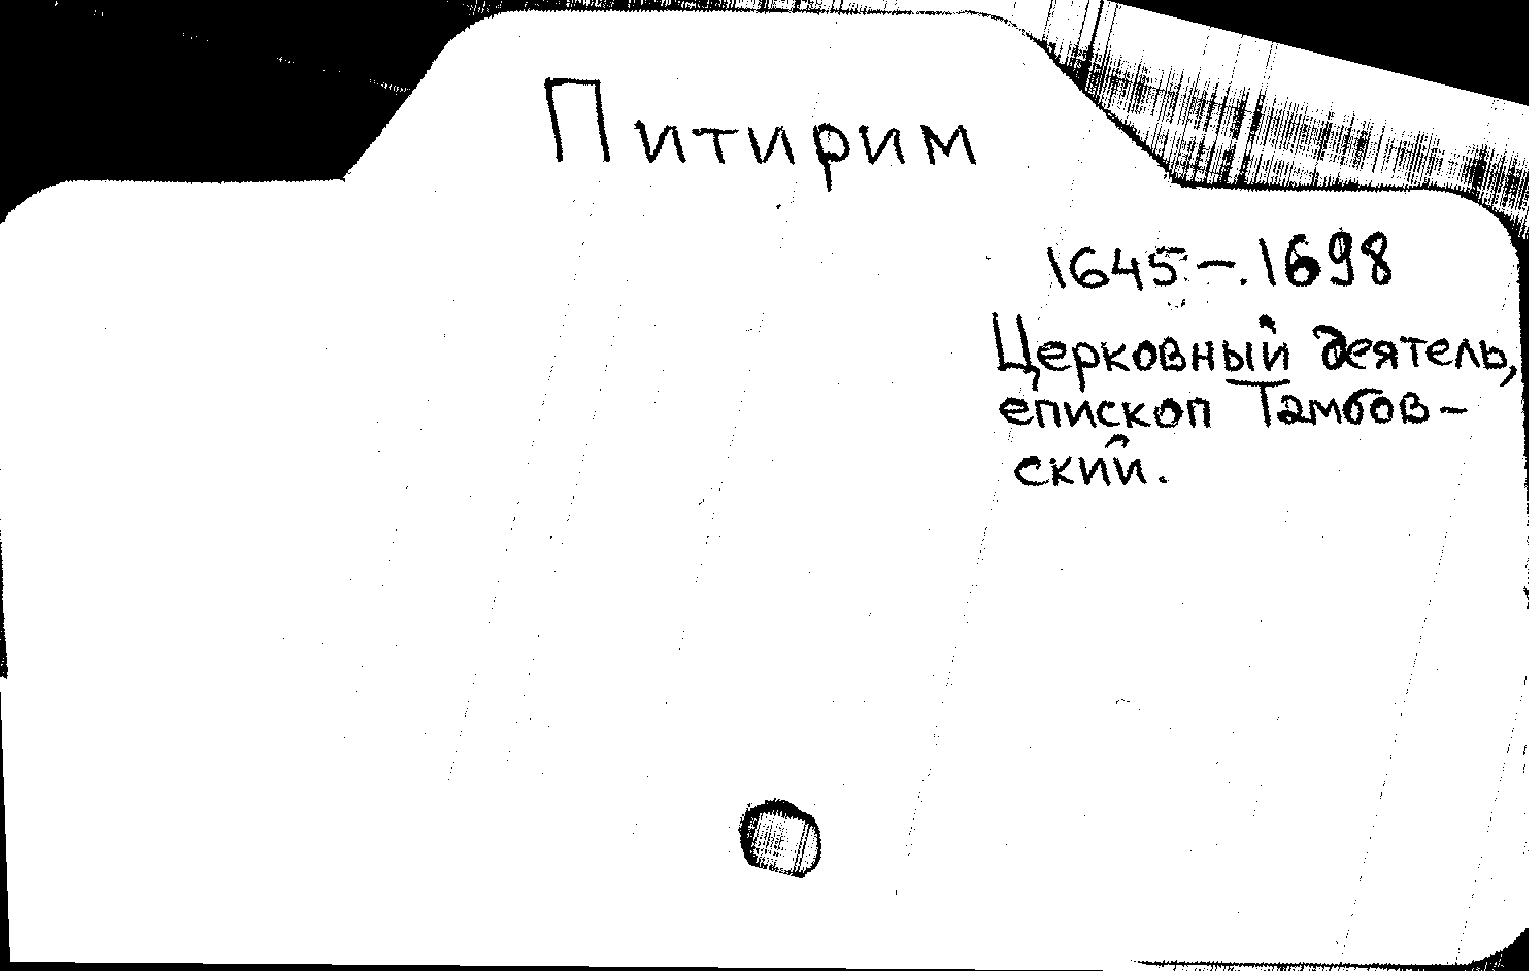 Питирим
1645-1698
Церковный деятель,
епископ Тамбов-
ский.